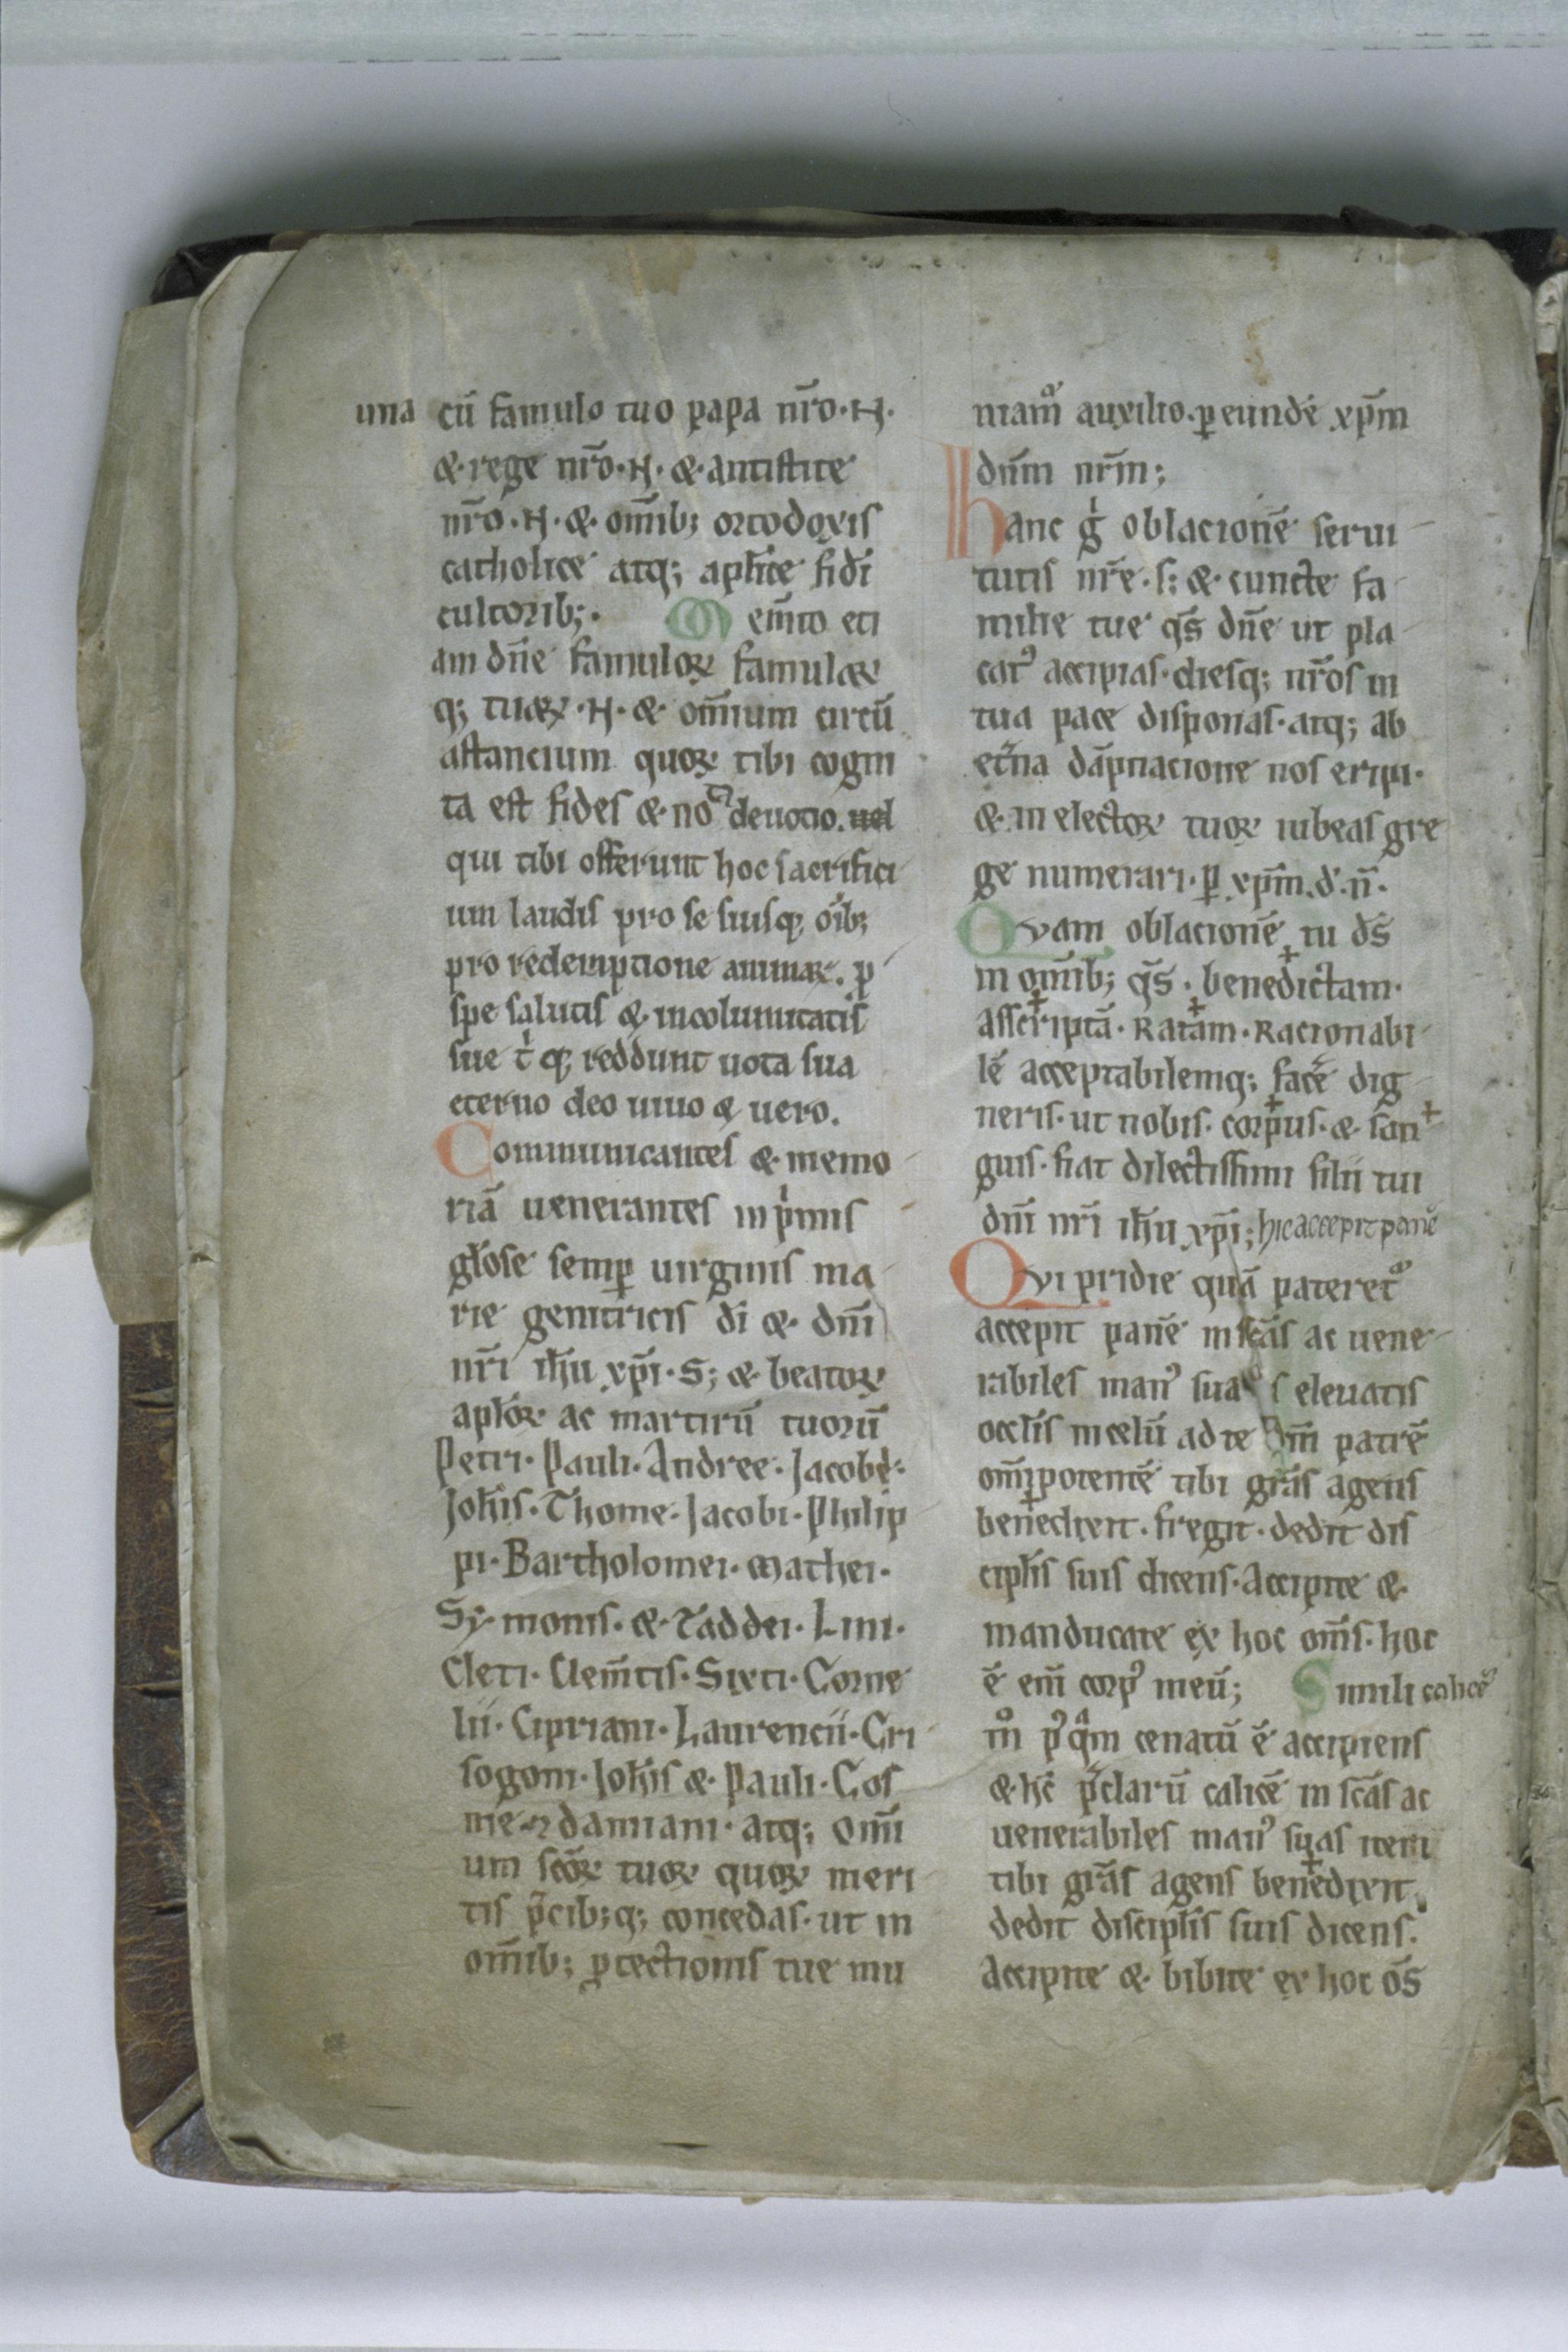 una cū famulo tuo papa nr̄o·N·
&·rege nr̄o·N·&·antistite
nr̄o·N·&·om̄ib; ortodoxis
catholice atq; apl̄ice fidi
cultorib;· Mem̄to eti
am dn̄e famuloꝝ famulaꝝ
q; tuaꝝ·N·&·om̄ium circū
astancium quoꝝ tibi cogni
ta est fides &·nota deuotio. uel
qui tibi offerunt hoc sacrifici
um laudis pro se suisq; oīb;
pro redemptione animaꝝ. ꝓ
spe salutis &·incolumitatis
sue tⁱ q; reddunt uota sua
eterno deo uiuo & uero.
Communicantes &·memo
riā uenerantes inpⁱmis
gl̄ose semꝑ uirginis ma
rie genitricis dī &·dn̄i
nr̄i ih̄u xp̄i·S; &·beatoꝝ
apl̄oꝝ ac martirū tuorū
Petri·Pauli·Andree·Jacobi·
Joh̄is·Thome·Jacobi·Philip
pi·Bartholomei·Mathei·
Symonis·&·Taddei·Lini·
Cleti·Clem̄tis·Sixti·Corne
lii·Cipriani·Laurencii·Cri
sogoni·Joh̄is &·Pauli·Cos
me ⁊ damiani·atq; om̄i
um sc̄oꝝ tuoꝝ quoꝝ meri
tis p̄cib;q; concedas·ut in
om̄ib; ꝓtectionis tue mu
niamᷣ auxilio·ꝑ eundē xp̄m
dn̄m nr̄m;
Hanc gⁱ oblacionē serui
tutis nr̄e·s; &·cuncte fa
milie tue qs̄ dn̄e ut pla
catꝰ accipias·diesq; nr̄os in
tua pace disponas·atq; ab
et̄na dāpnacione nos eripi·
&·in electoꝝ tuoꝝ iubeas gre
ge numerari·ꝑ xp̄m·d·n̄·
Qvam oblacionē tu ds̄
in om̄ib; qs̄·bene✝dictam·
ascri✝ptā·Ra✝tam·Racionabi
lē acceptabilemq; facē dig
neris·ut nobis·cor✝pus·&·san✝
guis·fiat dilectissimi filii tui
dn̄i nr̄i ih̄u xp̄i; hic accepit panē
Qvi pridie quā pateretᷣ
accepit panē in sc̄as ac uene
rabiles manꝰ suas eleuatis
occl̄is in celū ad te dm̄ patrē
om̄ipotentē tibi gr̄as agens
bene✝dixit·fregit·dedit dis
cipl̄is suis dicens·Accipite &·
manducate ex hoc om̄s·hoc
ē eni̅ corpꝰ meū; Simili calicē
mᵒ pꝰqᵃm cenatū ē accipiens
&·hc̄ p̄clarū calicē in sc̄as ac
uenerabiles manꝰ suas item
tibi gr̄as agens bene✝dixit.
dedit discipl̄is suis dicens·
Accipite &·bibite ex hoc om̄s